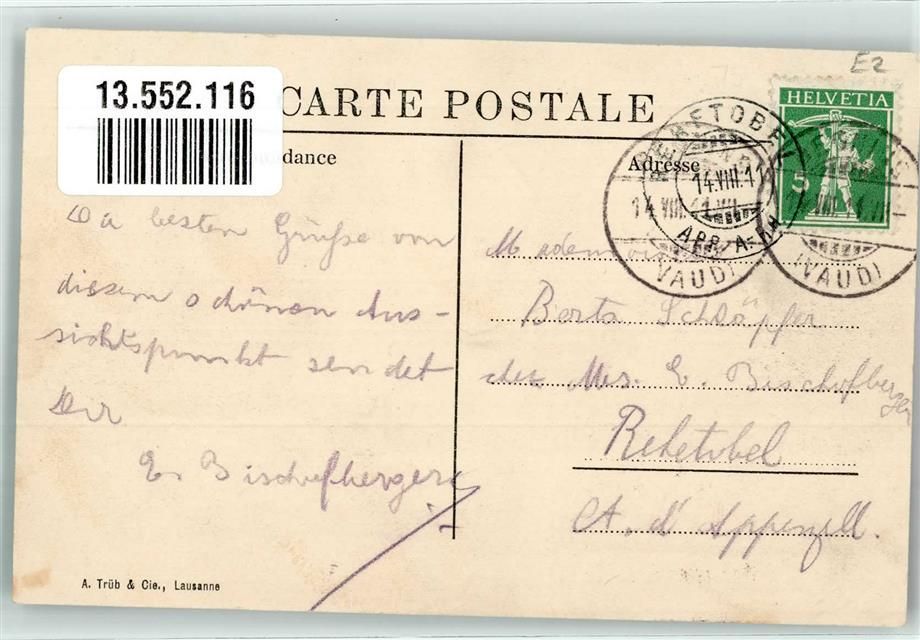 E2
13.552.116
CARTE POSTALE
HELVETIA
5
dance
Adresse
REHETOBEL
14.VIII.11
APP. A. RH.
14.VIII.11
(VAUD)
(VAUD)
besten Grüße von
diesem schönen Aus-
sichtspunkt sendet
Dir
E. Bischofberger
Mademoiselle
Berta Schläpfer
chez Mrs. E. Bischofberger
Rehetobel
Ct. d'Appenzell.
A. Trüb & Cie., Lausanne